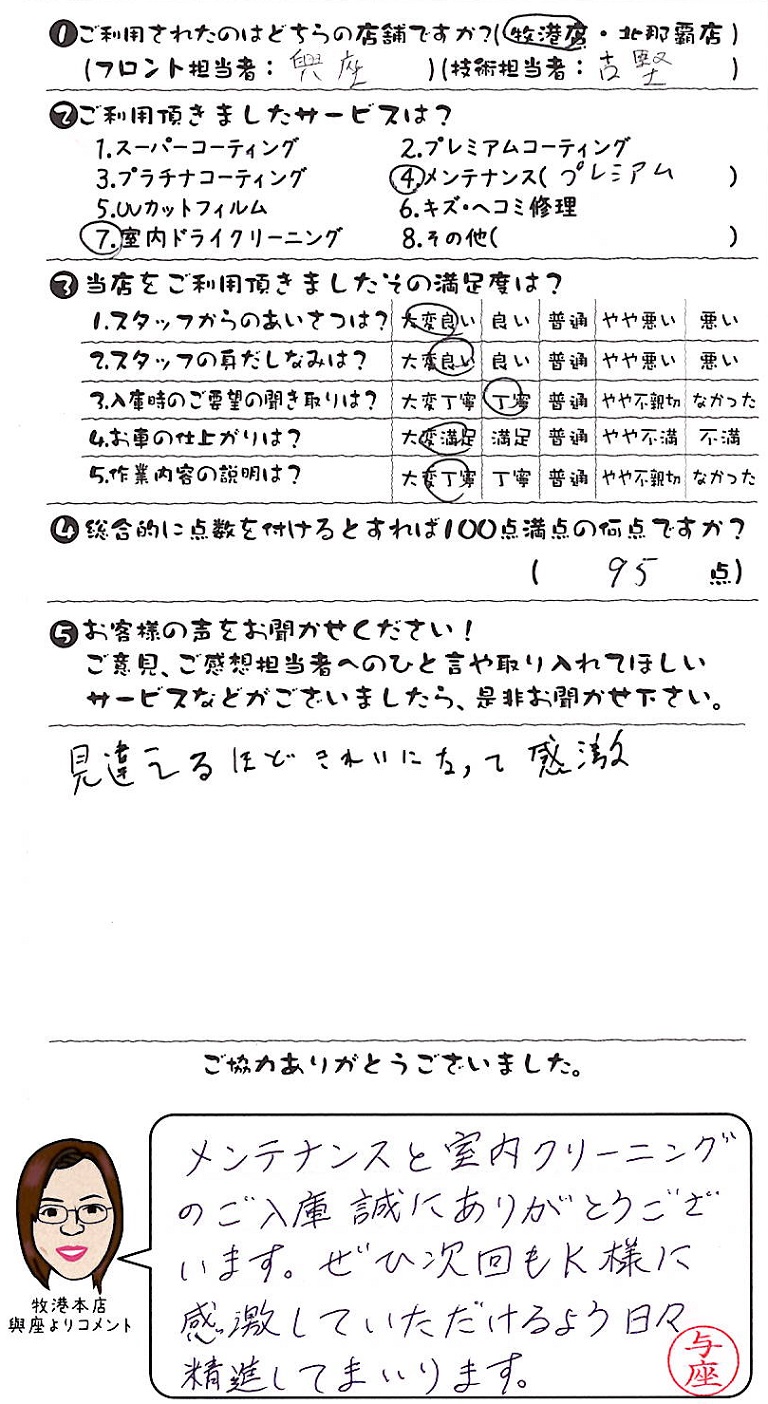 ❶ご利用されたのはどちらの店舗ですか?(牧港店・北那覇店)
(フロント担当者: 與座 )(技術担当者: 古堅 )
❷ご利用頂きましたサービスは?
1.スーパーコーティング 2.プレミアムコーティング
3.プラチナコーティング 4.メンテナンス( プレミアム )
5.UVカットフィルム 6.キズ・ヘコミ修理
7.室内ドライクリーニング 8.その他( )
❸当店をご利用頂きましたその満足度は?
1.スタッフからのあいさつは? 大変良い 良い 普通 やや悪い 悪い
2.スタッフの身だしなみは? 大変良い 良い 普通 やや悪い 悪い
3.入庫時のご要望の聞き取りは? 大変丁寧 丁寧 普通 やや不親切 なかった
4.お車の仕上がりは? 大変満足 満足 普通 やや不満 不満
5.作業内容の説明は? 大変丁寧 丁寧 普通 やや不親切 なかった
❹総合的に点数を付けるとすれば100点満点の何点ですか?
( 95 点)
❺お客様の声をお聞かせください!
ご意見、ご感想担当者へのひと言や取り入れてほしい
サービスなどがございましたら、是非お聞かせ下さい。
見違えるほどきれいになって感激
ご協力ありがとうございました。
メンテナンスと室内クリーニング
のご入庫誠にありがとうござ
います。ぜひ次回もK様に
感激していただけるよう日々
精進してまいります。
与座
牧港本店
與座よりコメント